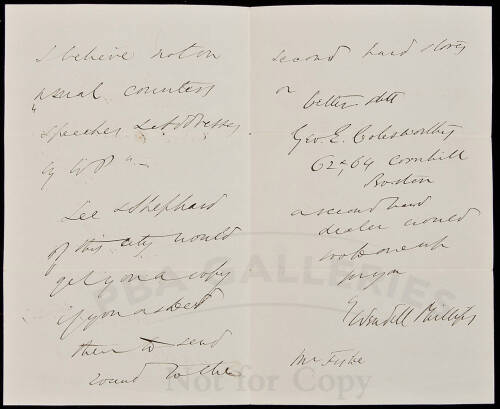 I believe not on
usual counters
"Speeches Lect. & Addresses
by WP" –
Lee & Shephard
of this city would
get you a copy
if you asked
them to send
round to the
second hand stores
or
better still
Geo. E. Colesworthy
62 & 64 Cornhill
Boston
a second hand
dealer would
look one up
for you
Wendell Phillips
Mr Fiske
PBA GALLERIES
Not for Copy